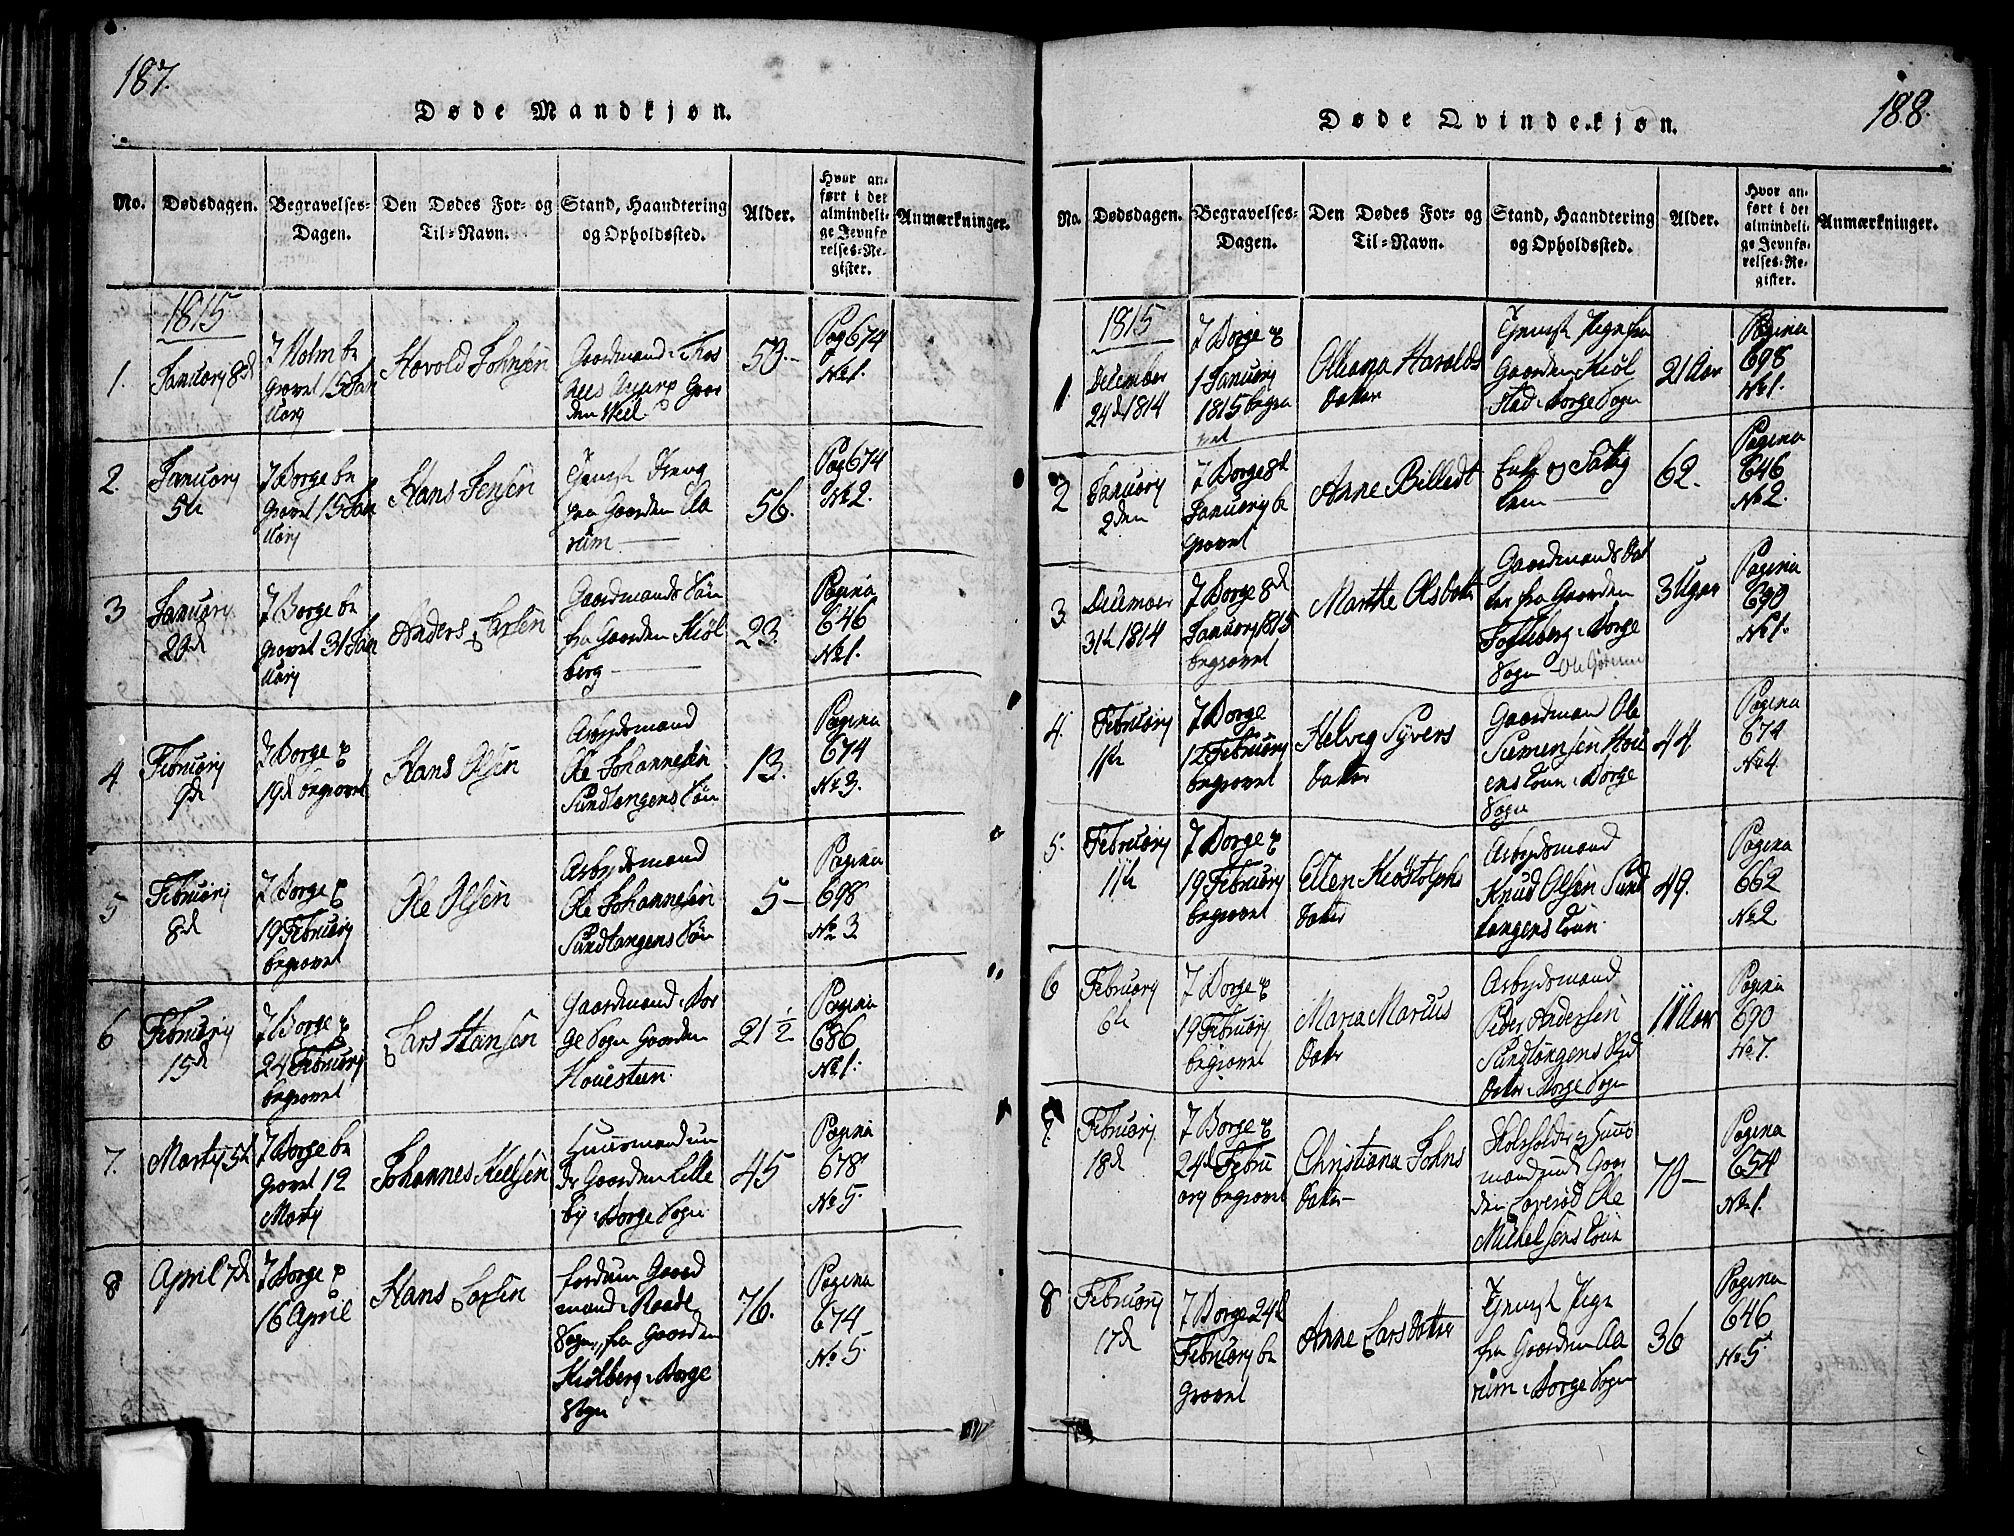 187.
Døde Mandkjøn.
No.
Dødsdagen.
Begravelses-
Dagen.
Den Dødes For- og
Til-Navn.
Stand, Haandtering
og Opholdssted.
Alder.
Hvor an-
ført i det
almindeli-
ge Jevnfø-
relses-Re-
gister.
Anmærkninger.
1815
1.
Januarj 8d
J Holm be
gravet 15 Jan
uarj
Havold Johnsen
Gaardmand i
den
53.-
Pag 674
No 1.
2.
Januarj
5te
J Borge be
gravet 15 Jan
uarj
Hans Jensen
Tjeneste Dreng
fra Gaarden Aa
rum
56.
Pag 674
No 2.
3
Januarj
J Borge be
gravet 31 Jan
uarj
Anders Larsen
Gaardmands Søn
fra Gaarden Kiøl
berg
23.
Pagina
646
No 1.
4
Februarj
9de
J Borge
19d begravet
Hans Olsen
Arbejdsmand
Ole Johannesen
Sundløngens Søn
13.
Pagina
674
No 3.
5
Februarj
8d
J Borge
19 Februarj
begravet
Ole Olsen
Arbejdsmand
Ole Johannesen
Sundløngens Søn
5-
Pagina
698
No 3
6
Februarj
15d
J Borge
24 Februarj
begravet
Lars Hansen
Gaardmand i Bor
ge Sogn Gaarden
Houesteen
21 1/2
Pagina
686
No 1.
7.
Martij 5t
J Borge be
gravet 12
Martij
Johannes Keelsen
Huusmand un
der Gaarden Lille
by i Borge Sogn
45
Pagina
678
No 5.
8
April 7de
J Borge
16 April
Hans Larsen
fordum Gaard
mand i Raade
Sogn, fra Gaarden
Kiølberg i Borge
Sogn
76.
Pagina
674
No 5.
188.
Døde Qvindekjøn.
No.
Dødsdagen.
Begravelses-
Dagen.
Den Dødes For- og
Til-Navn.
Stand, Haandtering
og Opholdssted.
Alder.
Hvor an-
ført i det
almindeli-
ge Jevnfø-
relses-Re-
gister.
Anmærkninger.
1815
1.
December
24d 1814
J Borge
1 Januarj
1815 begra
vet
Oleana Harolds
Datter
Tjeneste Pige fra
Gaarden Kiøl
stad i Borge Sogn
21 Aar
Pagina
698
No 1.
2
Januarj
2den
J Borge 8de
Januarj be
gravet
Anne Billedt
Enke og Fattig
lem
62.
Pagina
646
No 2.
3.
December
31te 1814
J Borge 8de
Januarj 1815
begravet
Marthe Olsdatter
Gaardmands Dat
ter fra Gaarden
Fogleberg i Borge
Sogn
3 Uger
Pagina
690
No 1.
4.
Februarj
1te
J Borge
12 Februarj
begravet
Helvig Syvers
Datter
Gaardmand Ole
Siemensen Houe
ens Kone i Borge
Sogn
44
Pagina
674
No 4.
5.
Februarj
11te
J Borge
19 Februarj
begravet
Ellen Kiøstolphs
Datter
Arbejdsmand
Knud Olsen Sund
løngens Kone
49.
Pagina
662
No 2.
6
Februarj
6te
J Borge
19 Februarj
begravet
Maria Marcus
Datter
Arbejdsmand
Peder Andersen
Sundløngens
Datter i Borge Sogn
11 Aar
Pagina
690
No 7.
7.
Februarj
18d
J Borge
24d Febru
arj begravet
Christiana Johns
Datter
Skoleholder og Huus
mand under Gaar
den Ole
Michelsens Kone
70-
Pagina
654
No 1.
8
Februarj
17d
J Borge 24de
Februarj be
gravet
Anne Lars Datter
Tjeneste Pige
fra Gaarden Aa
rum i Borge Sogn
36
Pagina
646
No 5.